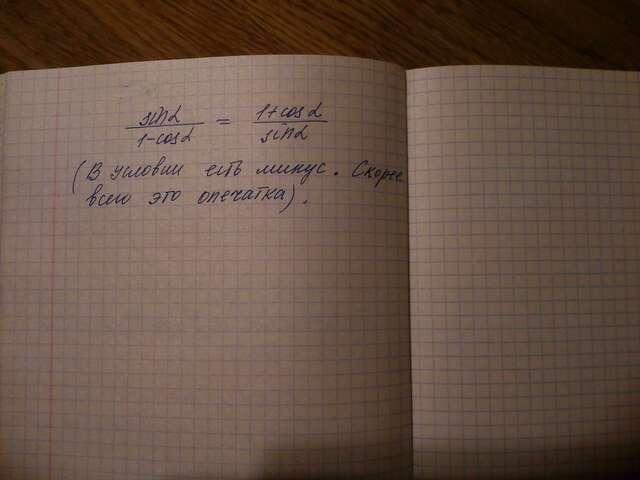 sinα / 1-cosα = 1+cosα / sinα
(В условии есть минус. Скорее
всего это опечатка).